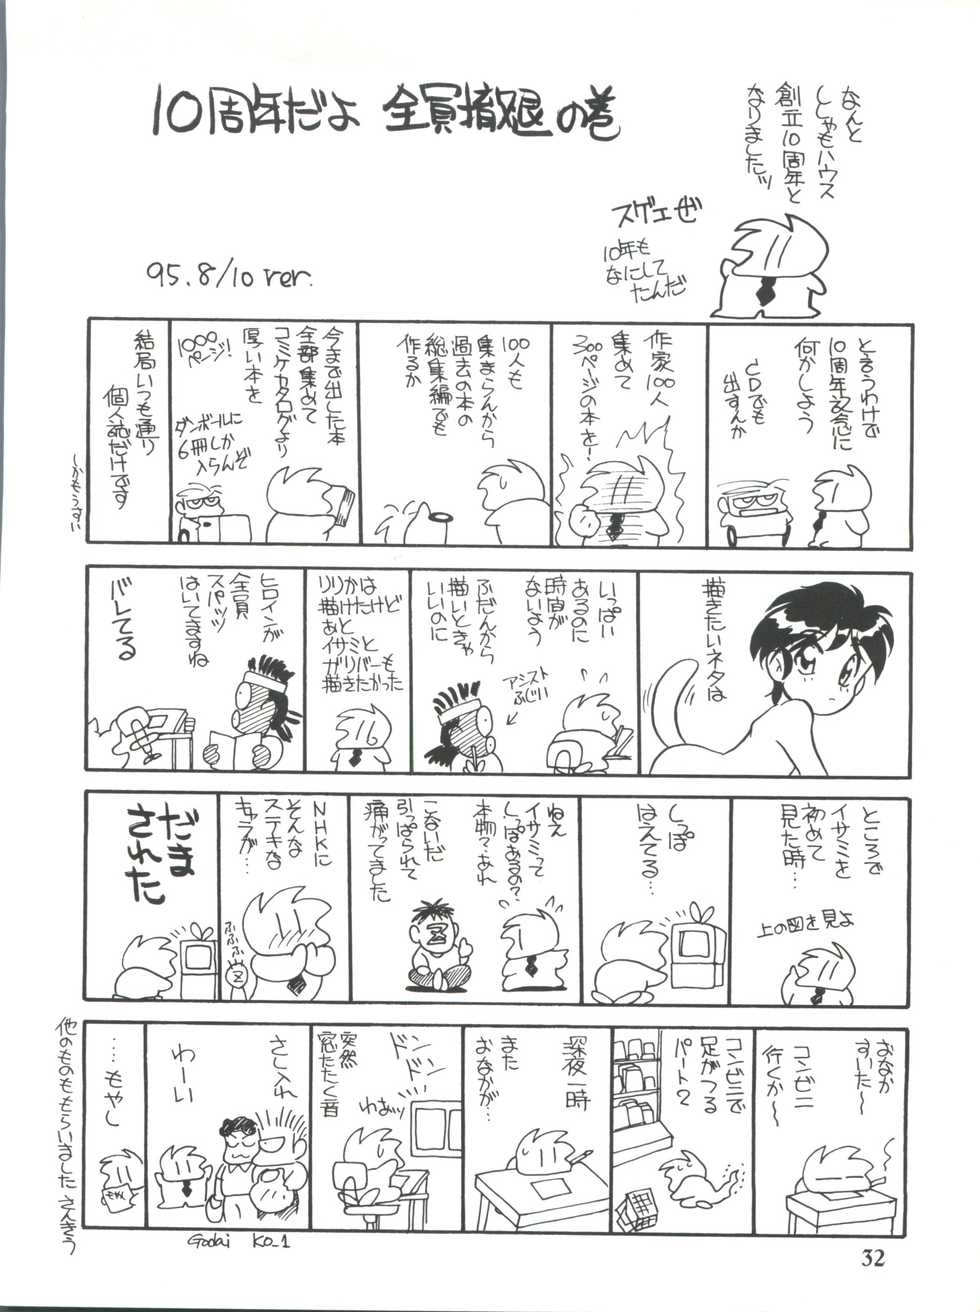 10周年だよ 全員撤退の巻
95.8/10 ver.
なんと
ししゃもハウス
創立10周年と
なりましたッ
スゲエぜ
10年も
なにして
たんだ
と言うわけで
10周年記念に
何かしよう
CDでも
出すんか
作家100人
集めて
300ページの本を!
100人も
集まらんから
過去の本の
総集編でも
作るか
今まで出した本
全部集めて
コミケカタログより
厚い本を
1000ページ!
ダンボールに
6冊しか
入らんぞ
結局いつも通り
個人誌だけです
しかもうすい
描きたいネタは
いっぱい
あるのに
時間が
ないよう
ふだんから
描いときゃ
いいのに
アシスト
ふじい
りりかは
描けたけど
あと
イサミと
ガリバーも
描きたかった
ヒロインが
全員
スパッツ
はいてますね
バレてる
ところで
イサミを
初めて
見た時…
上の図を見よ
しっぽ
はえてる…
ねえ
イサミって
しっぽあるの?
本物?あれ
こないだ
引っぱられて
痛がってました
NHKに
そんな
ステキな
キャラが…
ふふふ
だま
された
おなか
すいた〜
コンビニ
行くか〜
コンビニで
足がつる
パート2
深夜一時
また
おなかが…
ドンドンドン
突然
窓たたく音
わあッ
さし入れ
わーい
……もやし
もやし
他のものももらいました さんきう
Godai Ko_1
32